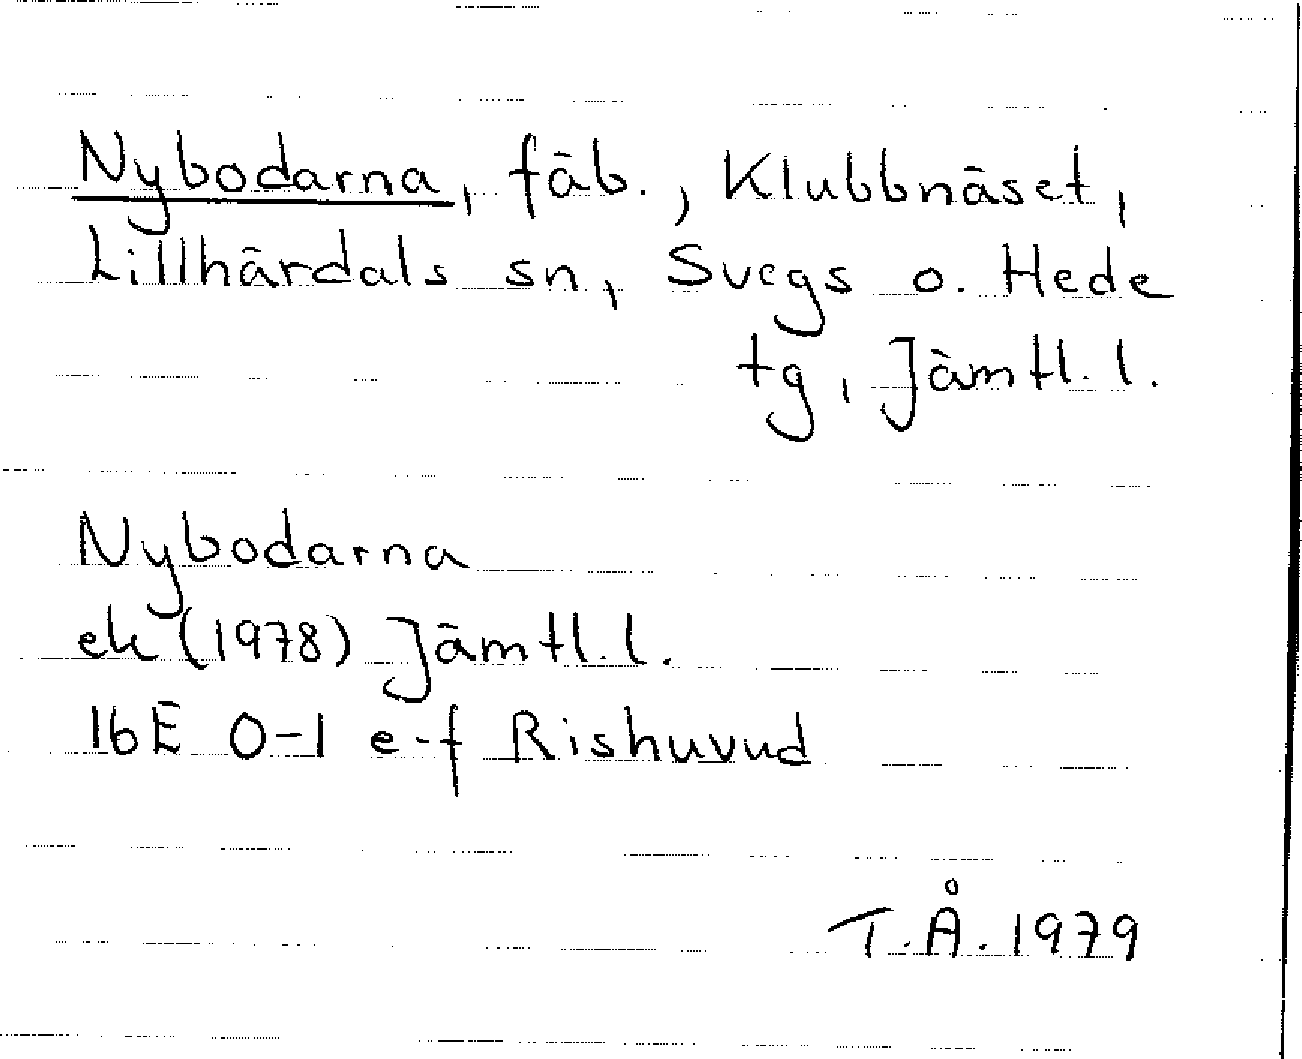 Nybodarna, fäb., Klubbnäset,
Lillhärdals sn, Svegs o. Hede
tg, Jämtl. l.
Nybodarna
ek (1978) Jämtl. l.
16E 0-1 e-f Rishuvud
T.Å. 1979